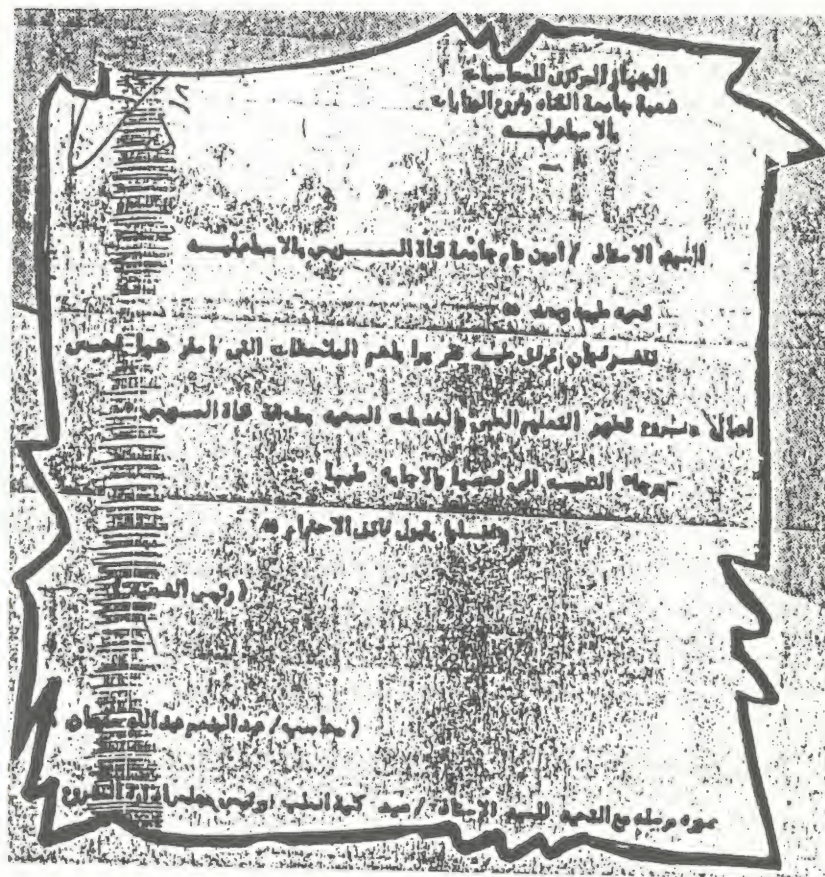 الجهاز المركزى للمحاسبات
شعبة جامعة القناه وفروع الجامعات
بالاسماعيليه
السيد الاستاذ / أمين عام جامعة قناة الســـويس بالاسماعيليــه
تحيه طيبه وبعد ٥٥
نتشرف بأن نرفق طيــه تقريرا بأهم الملاحظات التى أسفر عنها فحص
اعمال مشروع تطوير التعليم الطبى والخدمات الصحيه بمنطقة قناة السويس
برجاء التنبيــه الى فحصها والاجابة عليها ٠
وتفضلوا بقبول فائق الاحترام ٥٥
( رئيس الشعبة )
( محاسب / عبد المنعم عبد الله
صوره مرسله مع التحيه للسيد الاستاذ / عميد كلية الطب ورئيس مجلس ادارة المشروع